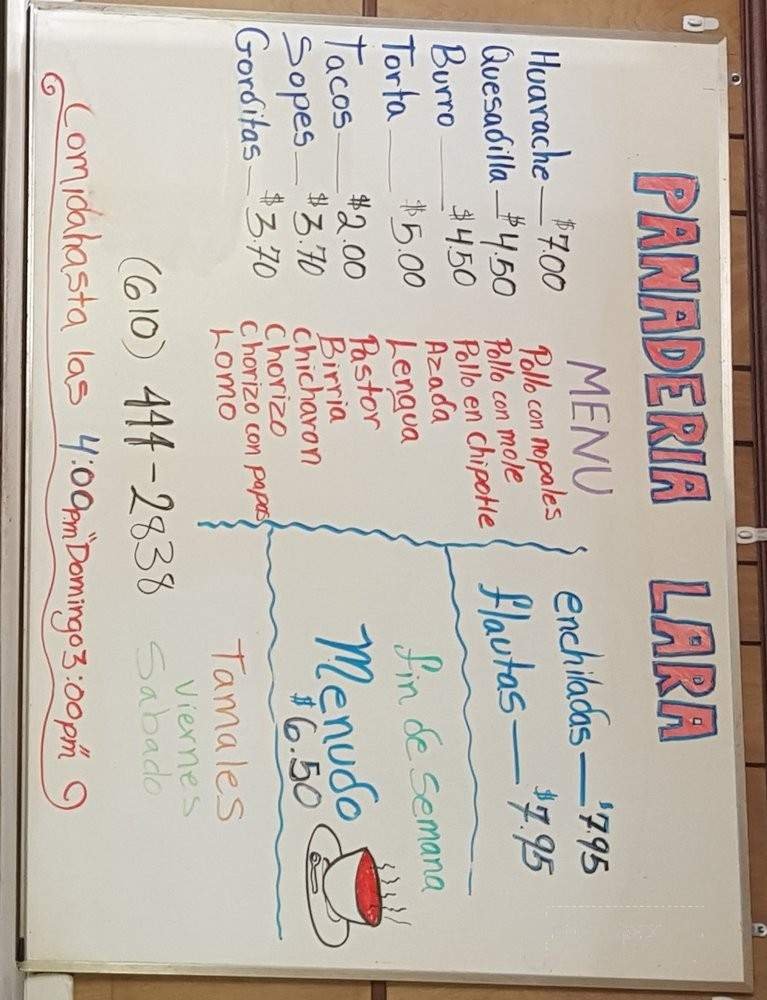 PANADERIA LARA
MENU
Huarache $7.00
Quesadilla $4.50
Burro $4.50
Torta $5.00
Tacos $2.00
Sopes $3.70
Gorditas $3.70
Pollo con nopales
Pollo con mole
Pollo en chipotle
Azada
Lengua
Pastor
Birria
Chicharon
Chorizo
Chorizo con papas
Lomo
enchiladas $7.95
flautas $7.95
fin de semana
Menudo
$6.50
Tamales
Viernes
Sabado
(610) 444-2838
Comida hasta las 4:00pm "Domingo 3:00pm"